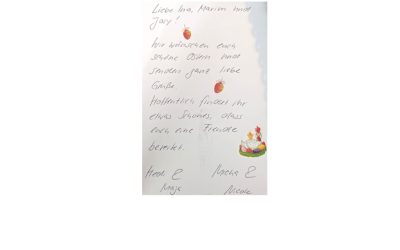 Liebe Ina, Marion und
Joey!
Wir wünschen euch
schöne Ostern und
senden ganz liebe
Grüße
Hoffentlich findet ihr
etwas Schönes, dass
euch eine Freude
bereitet.
Heidi &
Maja
Micha &
Nicole